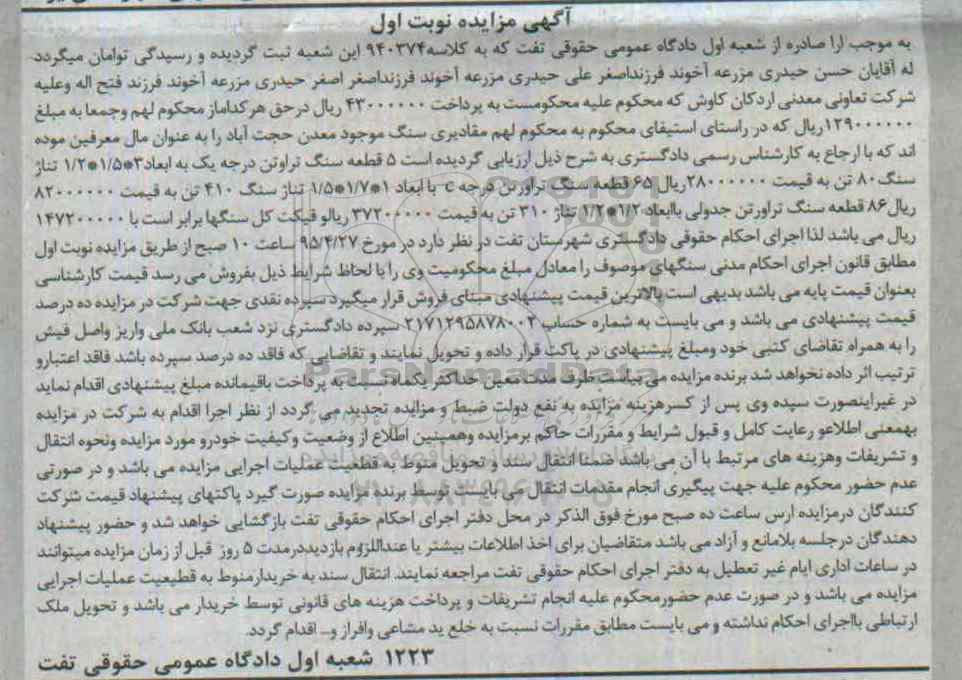 آگهی مزایده نوبت اول
به موجب ارا صادره از شعبه اول دادگاه عمومی حقوقی تفت که به کلاسه ۹۴۰۳۷۴ این شعبه ثبت گردیده و رسیدگی توامان میگردد
له آقایان حسن حیدری مزرعه آخوند فرزنداصغر علی حیدری مزرعه آخوند فرزنداصغر اصغر حیدری مزرعه آخوند فرزند فتح اله وعلیه
شرکت تعاونی معدنی اردکان کاوش که محکوم علیه محکومست به پرداخت ۴۳۰۰۰۰۰۰ ریال درحق هرکداماز محکوم لهم وجمعا به مبلغ
۱۲۹۰۰۰۰۰۰ریال که در راستای استیفای محکوم به محکوم لهم مقادیری سنگ موجود معدن حجت آباد را به عنوان مال معرفین موده
اند که با ارجاع به کارشناس رسمی دادگستری به شرح ذیل ارزیابی گردیده است ۵ قطعه سنگ تراوتن درجه یک به ابعاد۳*۱/۵*۱/۲ تناژ
سنگ۸۰ تن به قیمت ۲۸۰۰۰۰۰۰ریال ۶۵ قطعه سنگ تراورتن درجه c با ابعاد ۱*۱/۷*۱/۵ تناژ سنگ ۴۱۰ تن به قیمت ۸۲۰۰۰۰۰۰
ریال۸۶ قطعه سنگ تراورتن جدولی باابعاد ۱/۲*۱/۲ تناژ ۳۱۰ تن به قیمت ۳۷۲۰۰۰۰۰ ریالو قیکت کل سنگها برابر است با ۱۴۷۲۰۰۰۰۰
ریال می باشد لذا اجرای احکام حقوقی دادگستری شهرستان تفت در نظر دارد در مورخ ۹۵/۴/۲۷ ساعت ۱۰ صبح از طریق مزایده نوبت اول
مطابق قانون اجرای احکام مدنی سنگهای موصوف را معادل مبلغ محکومیت وی را با لحاظ شرایط ذیل بفروش می رسد قیمت کارشناسی
بعنوان قیمت پایه می باشد بدیهی است بالاترین قیمت پیشنهادی مبنای فروش قرار میگیرد سپرده نقدی جهت شرکت در مزایده ده درصد
قیمت پیشنهادی می باشد و می بایست به شماره حساب ۲۱۷۱۲۹۵۸۷۸۰۰۲ سپرده دادگستری نزد شعب بانک ملی واریز واصل فیش
را به همراه تقاضای کتبی خود ومبلغ پیشنهادی در پاکت قرار داده و تحویل نمایند و تقاضایی که فاقد ده درصد سپرده باشد فاقد اعتبارو
ترتیب اثر داده نخواهد شد برنده مزایده می بیاست ظرف مدت معین حداکثر یکماه نسبت به پرداخت باقیمانده مبلغ پیشنهادی اقدام نماید
در غیراینصورت سپده وی پس از کسرهزینه مزایده به نفع دولت ضبط و مزایده تجدید می گردد از نظر اجرا اقدام به شرکت در مزایده
بهمعنی اطلاعو رعایت کامل و قبول شرایط و مقررات حاکم برمزایده وهمپنین اطلاع از وضعیت وکیفیت خودرو مورد مزایده ونحوه انتقال
و تشریفات وهزینه های مرتبط با آن می باشد ضمنا انتقال سند و تحویل منوط به قطعیت عملیات اجرایی مزایده می باشد و در صورتی
عدم حضور محکوم علیه جهت پیگیری انجام مقدمات انتقال می بایست توسط برنده مزایده صورت گیرد پاکتهای پیشنهاد قیمت شرکت
کنندگان درمزایده ارس ساعت ده صبح مورخ فوق الذکر در محل دفتر اجرای احکام حقوقی تفت بازگشایی خواهد شد و حضور پیشنهاد
دهندگان درجلسه بلامانع و آزاد می باشد متقاضیان برای اخذ اطلاعات بیشتر یا عنداللزوم بازدیددرمدت ۵ روز قبل از زمان مزایده میتوانند
در ساعات اداری ایام غیر تعطیل به دفتر اجرای احکام حقوقی تفت مراجعه نمایند. انتقال سند به خریدارمنوط به قطیعیت عملیات اجرایی
مزایده می باشد و در صورت عدم حضورمحکوم علیه انجام تشریفات و پرداخت هزینه های قانونی توسط خریدار می باشد و تحویل ملک
ارتباطی بااجرای احکام نداشته و می بایست مطابق مقررات نسبت به خلع ید مشاعی وافراز و... اقدام گردد.
۱۲۲۳ شعبه اول دادگاه عمومی حقوقی تفت
ParsNamadData